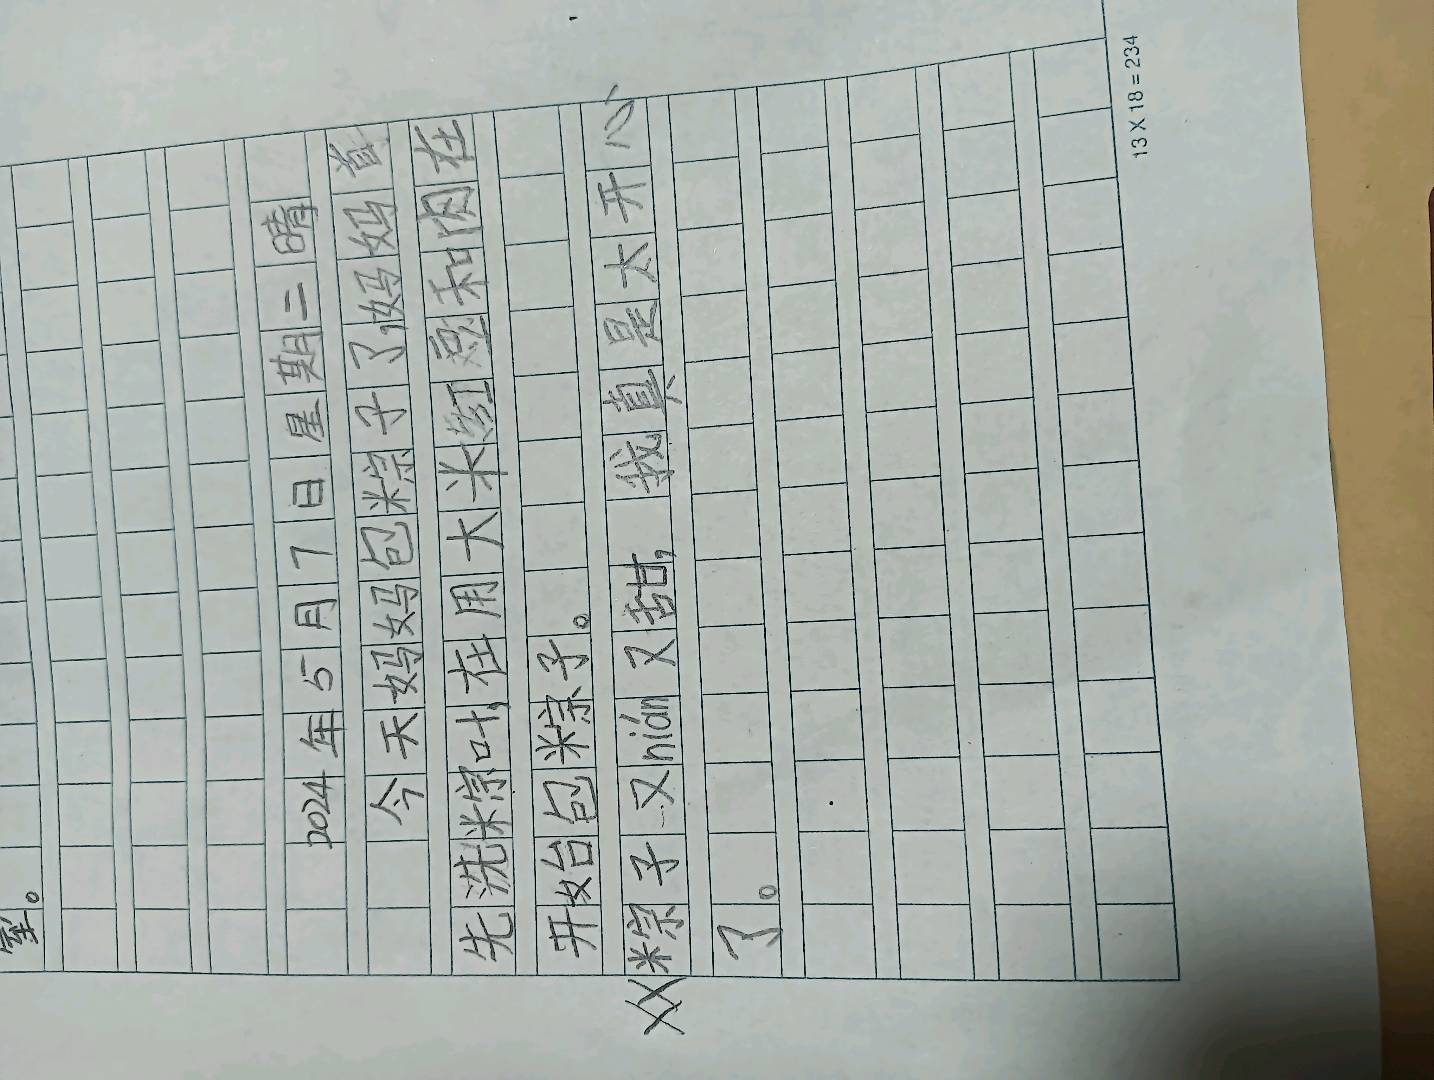 室。
2024年5月7日星期二晴
今天妈妈包粽子了,妈妈首
先洗粽叶,在用大米红豆和肉在
开始包粽子。
粽子又nián又甜,我真是太开心
了。
13 X 18 = 234